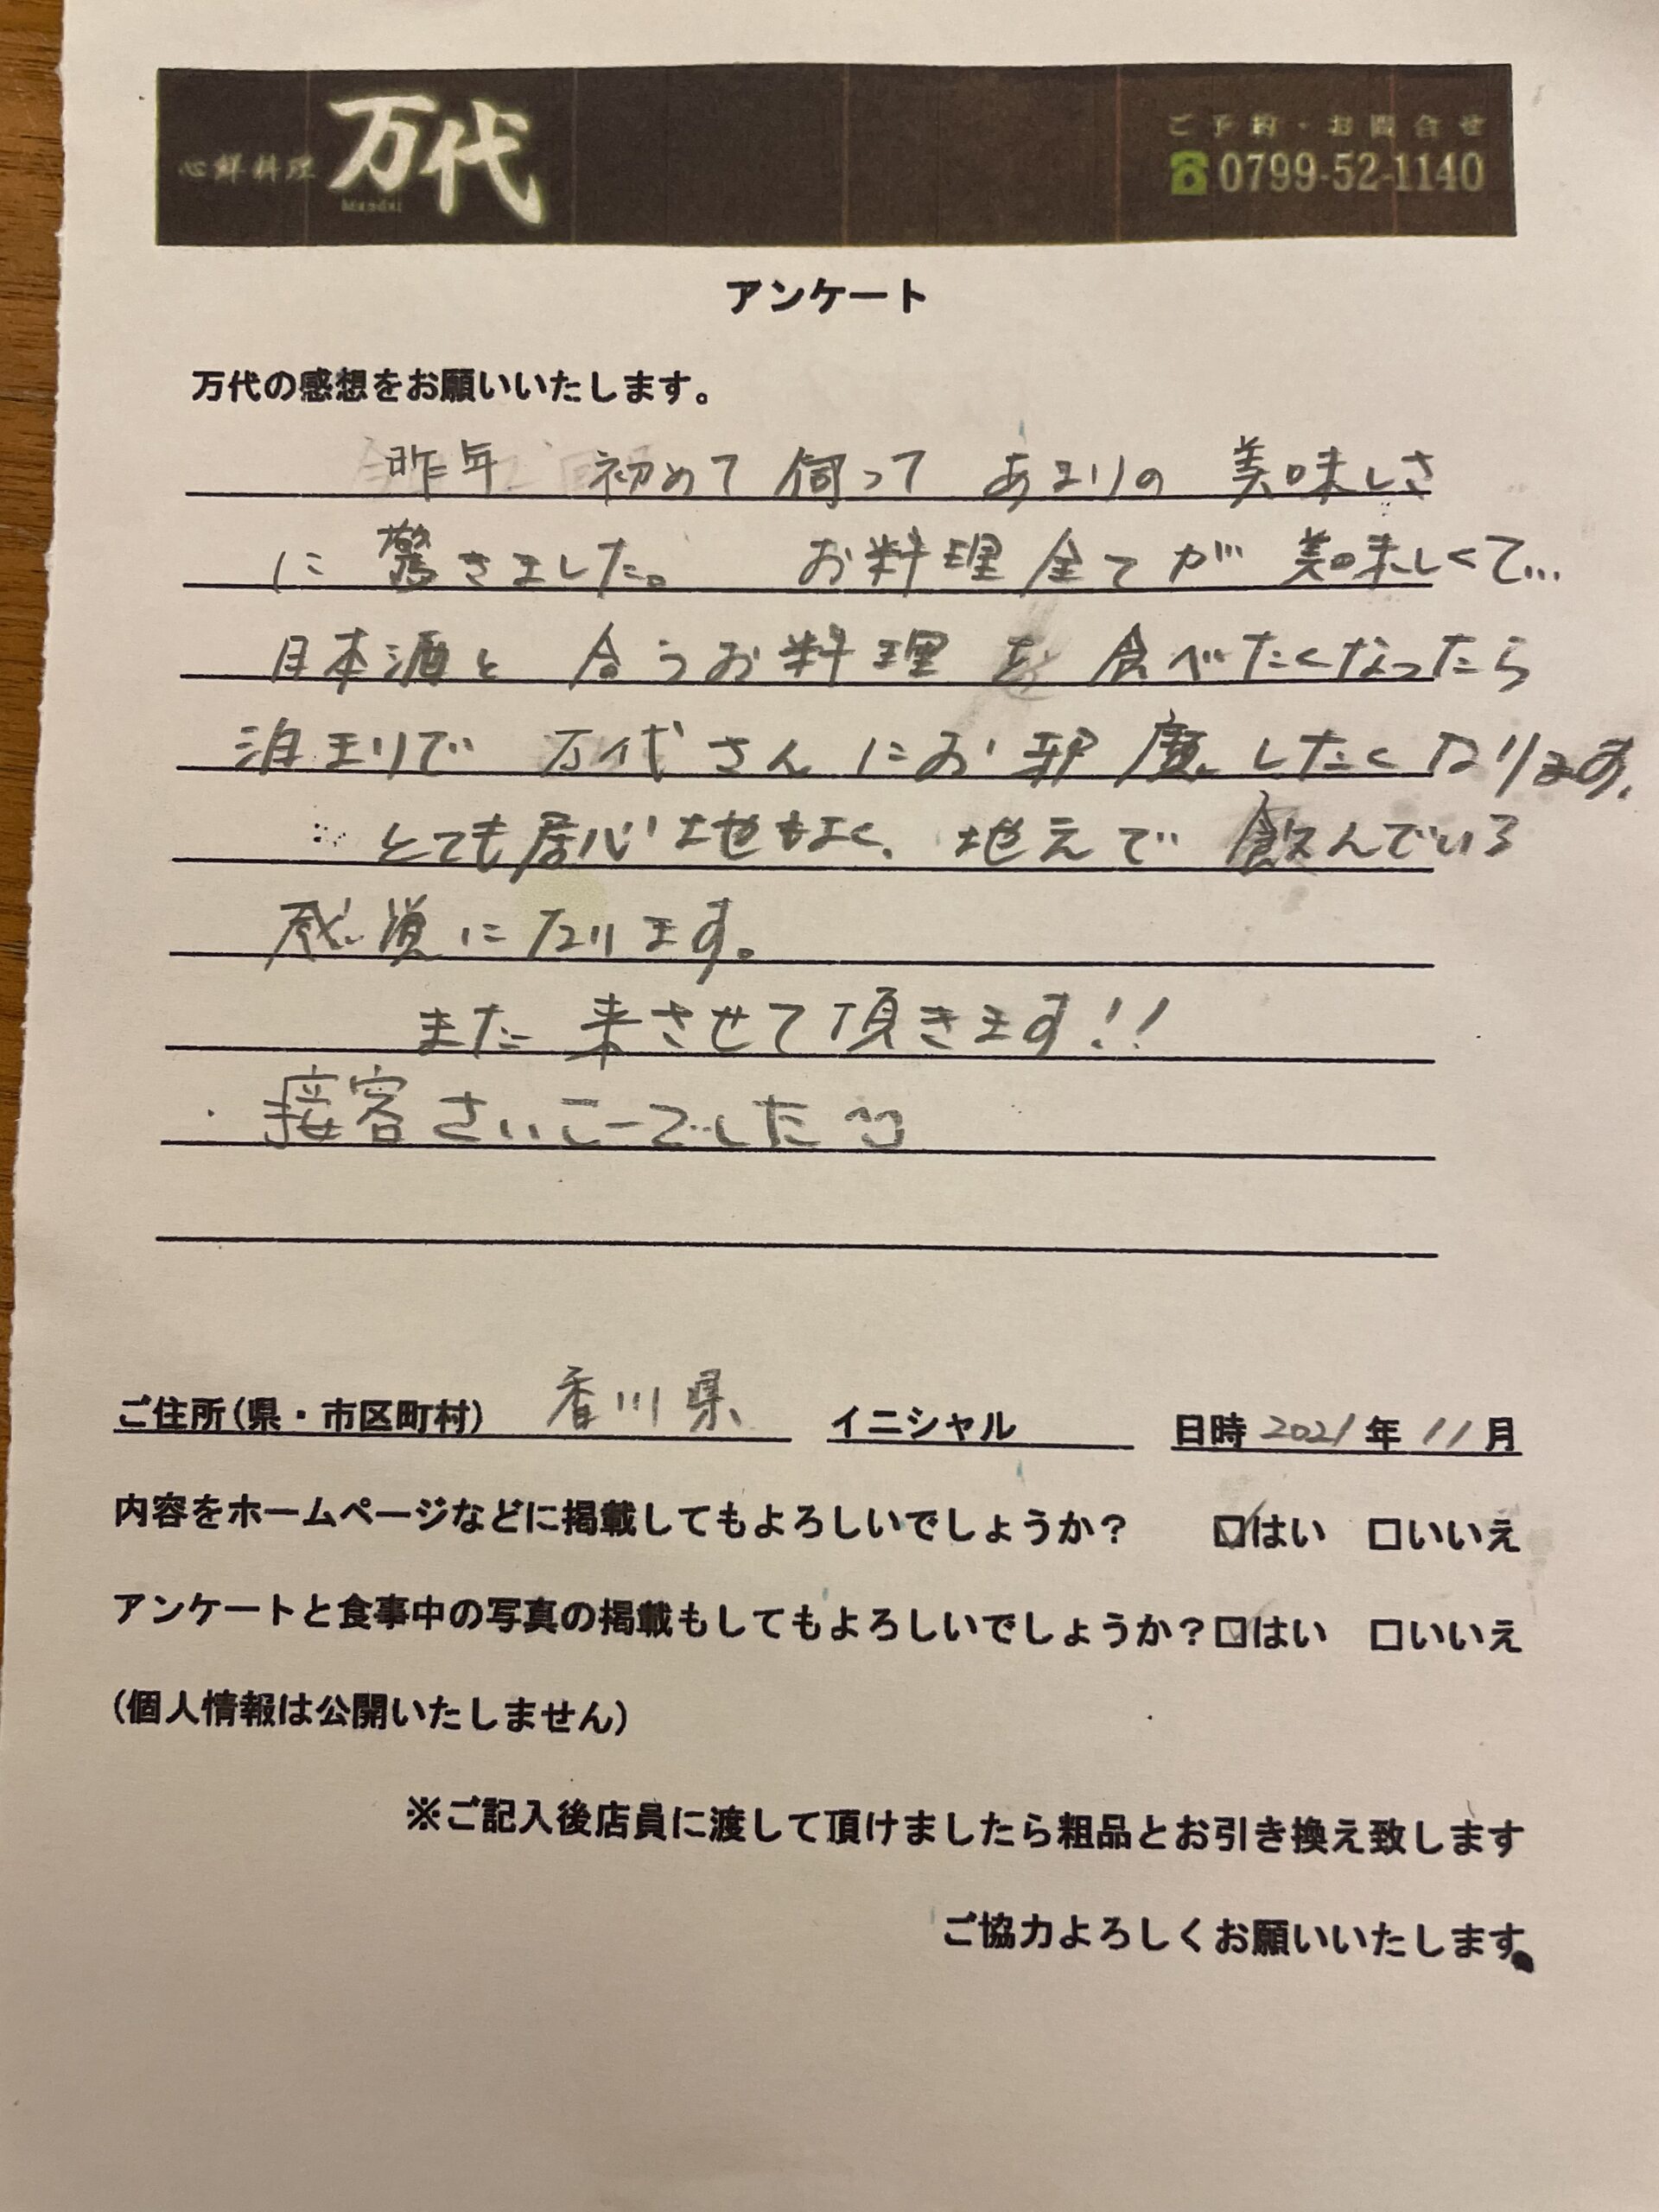 心鮮料理 万代
Mandai
ご予約・お問合せ
☎0799-52-1140
アンケート
万代の感想をお願いいたします。
昨年 初めて伺って あまりの 美味しさ
に驚きました。 お料理全てが 美味しくて…
日本酒と 合うお料理を 食べたくなったら
泊まりで 万代さんにお邪魔したくなります。
とても居心地もよく、地元で 飲んでいる
感覚になります。
また 来させて頂きます!!
・接客さいこーでした
ご住所(県・市区町村) 香川県 イニシャル 日時 2021年 11月
内容をホームページなどに掲載してもよろしいでしょうか? ☑はい □いいえ
アンケートと食事中の写真の掲載もしてもよろしいでしょうか?☑はい □いいえ
(個人情報は公開いたしません)
※ご記入後店員に渡して頂けましたら粗品とお引き換え致します
ご協力よろしくお願いいたします。